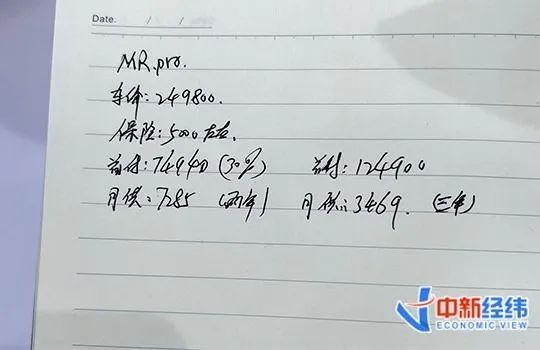 Date. / /
MR.pro.
车价:249800.
保险:5000左右.
首付:74940(30%) 首付:124900
月供:7285 (两年) 月供:3469. (三年)
中新经纬
ECONOMIC VIEW